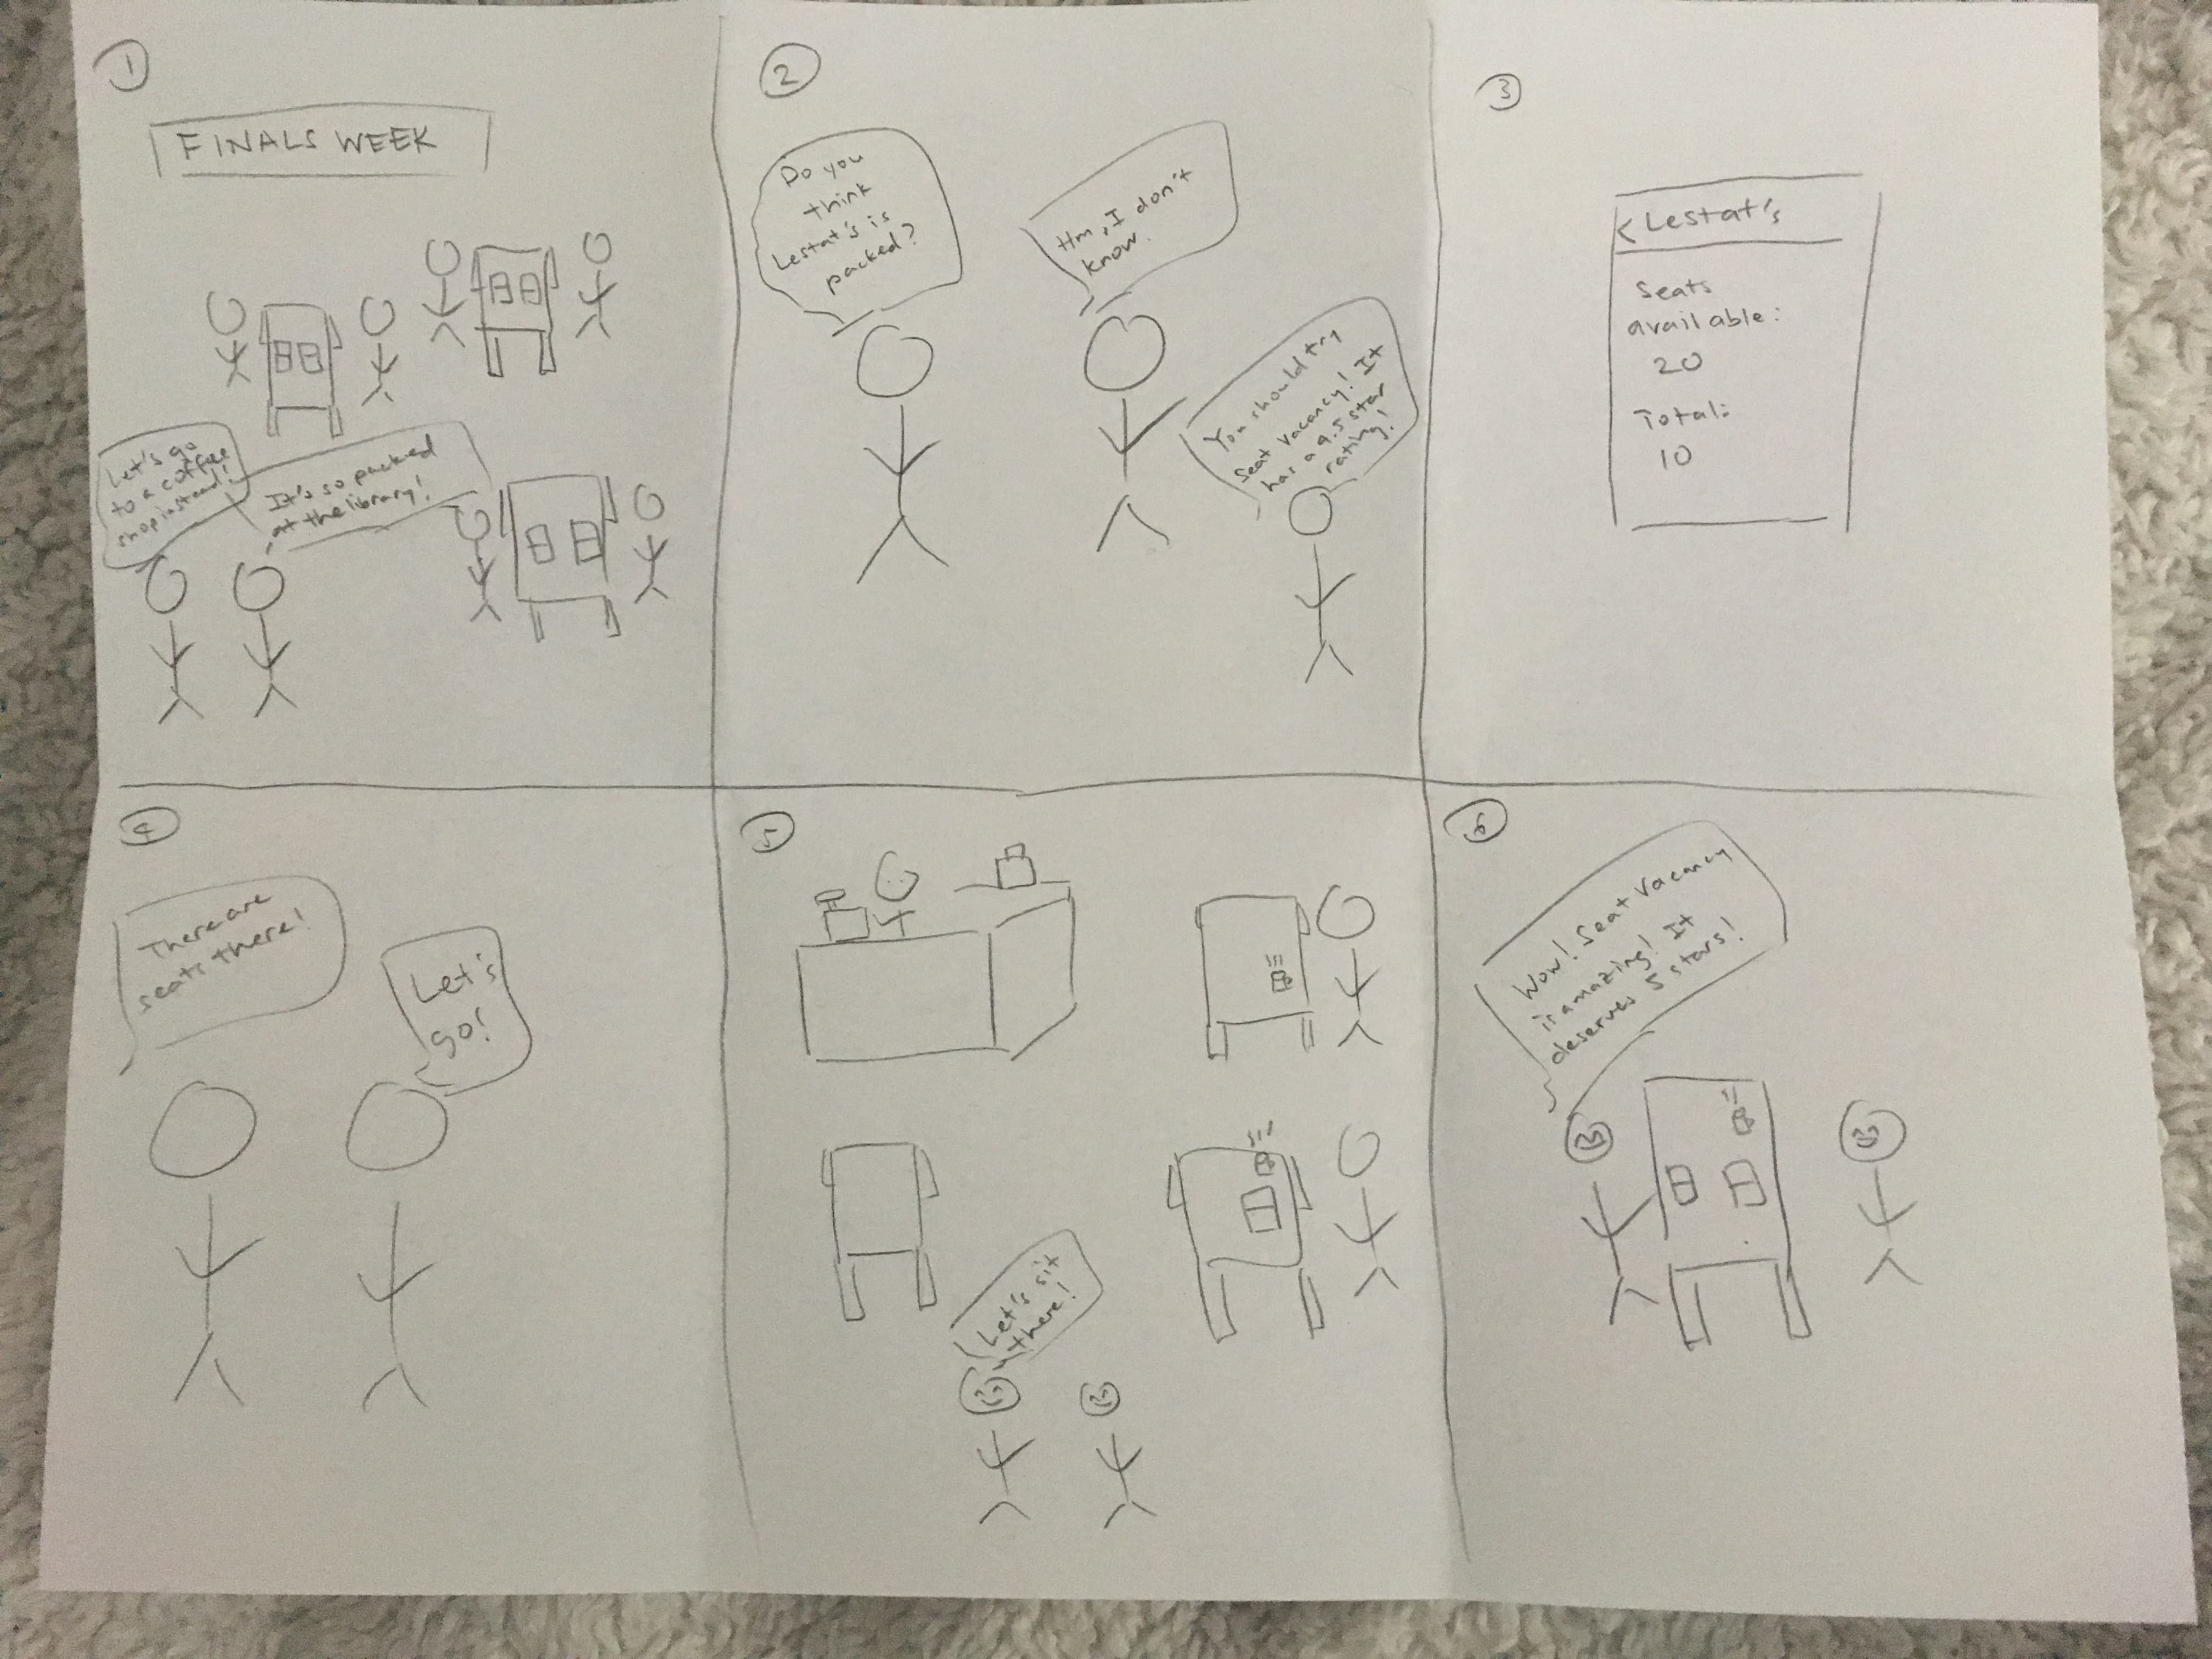 1
FINALS WEEK
Let's go
to a coffee
shop instead!
It's so packed
at the library!
2
Do you
think
Lestat's is
packed?
Hm, I don't
know.
You should try
Seat Vacancy! It
has a 4.5 star
rating!
3
< Lestat's
Seats
available:
20
Total:
10
4
There are
seats there!
Let's
go!
5
Let's sit
there!
6
Wow! Seat Vacancy
is amazing! It
deserves 5 stars!